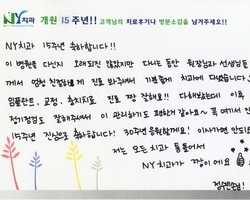 NY치과 개원 15주년!! 고객님의 치료후기나 방문소감을 남겨주세요!!
NY치과 15주년 축하합니다!!
이 병원을 다닌지 오래되진 않았지만 다니는 동안 원장님과 선생님들
께서 엄청 친절하게 진료 봐주셔서 기분좋게 치과에 다녔습니다
임플란트, 교정, 충치치료 진료 짱 잘해요!! 다해봤는데 이후
정기검진도 잘해주셔서 이 관리하기도 편하거 같아요~ 꼭 여기서 진
15주년 진심으로 축하합니다! 30주년 응원할게요! 이사가면 안되요
저는 모든 치과 통틀어서
NY치과가 짱이에요